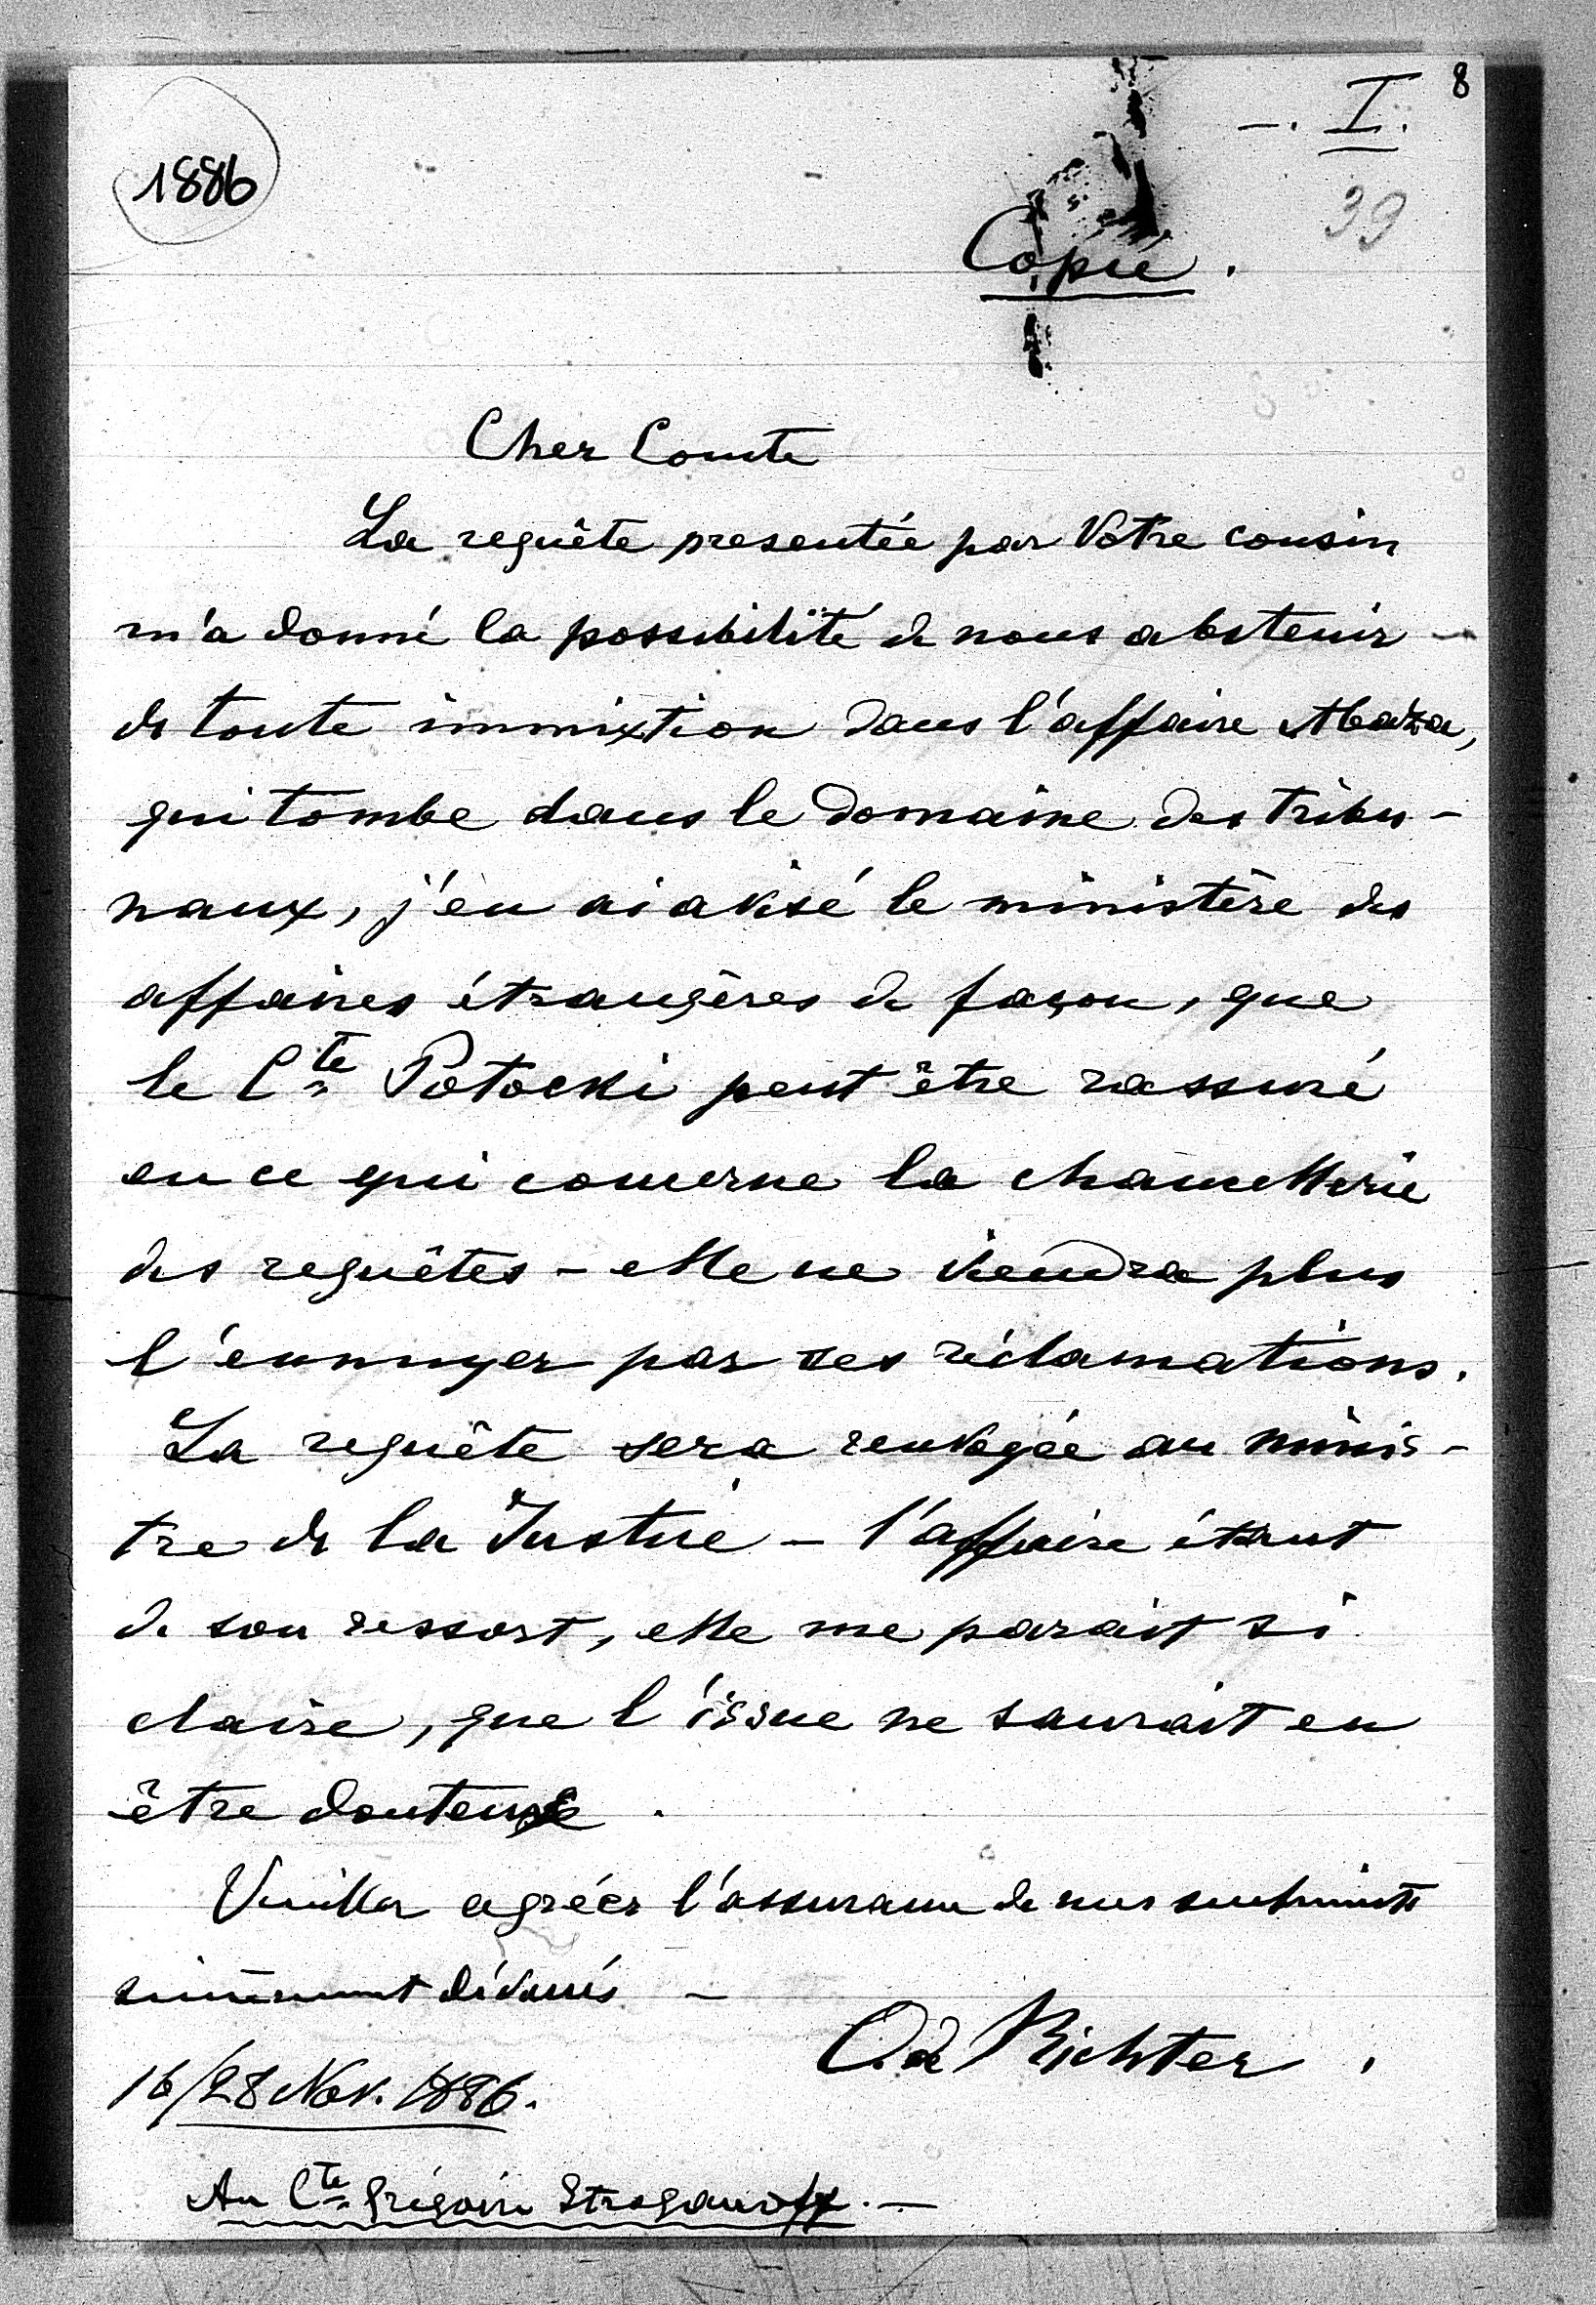 8
—. I.
1886
39
Copié.
Cher Comte
La requête presentée par Votre cousin
m'a donné la possibilité de nous abstenir
de toute immixtion dans l'affaire Abaza,
qui tombe dans le domaine des tribu-
naux, j'en ai avisé le ministère des
affaires étrangères de façon, que
le Cte Potocki peut être rassuré
en ce qui concerne la chancellerie
des requêtes – elle ne viendra plus
l'ennuyer par ses réclamations.
La requête sera renvoyée au minis-
tre de la Justice – l'affaire étant
de son ressort, elle me parait si
claire, que l'issue ne saurait en
être douteuse.
Veuillez agréer l'assurance de mes sentiments
sincèrement dévoués –
O. de Richter.
16/28 Nov. 1886.
Au Cte Grégoire Stroganoff. —